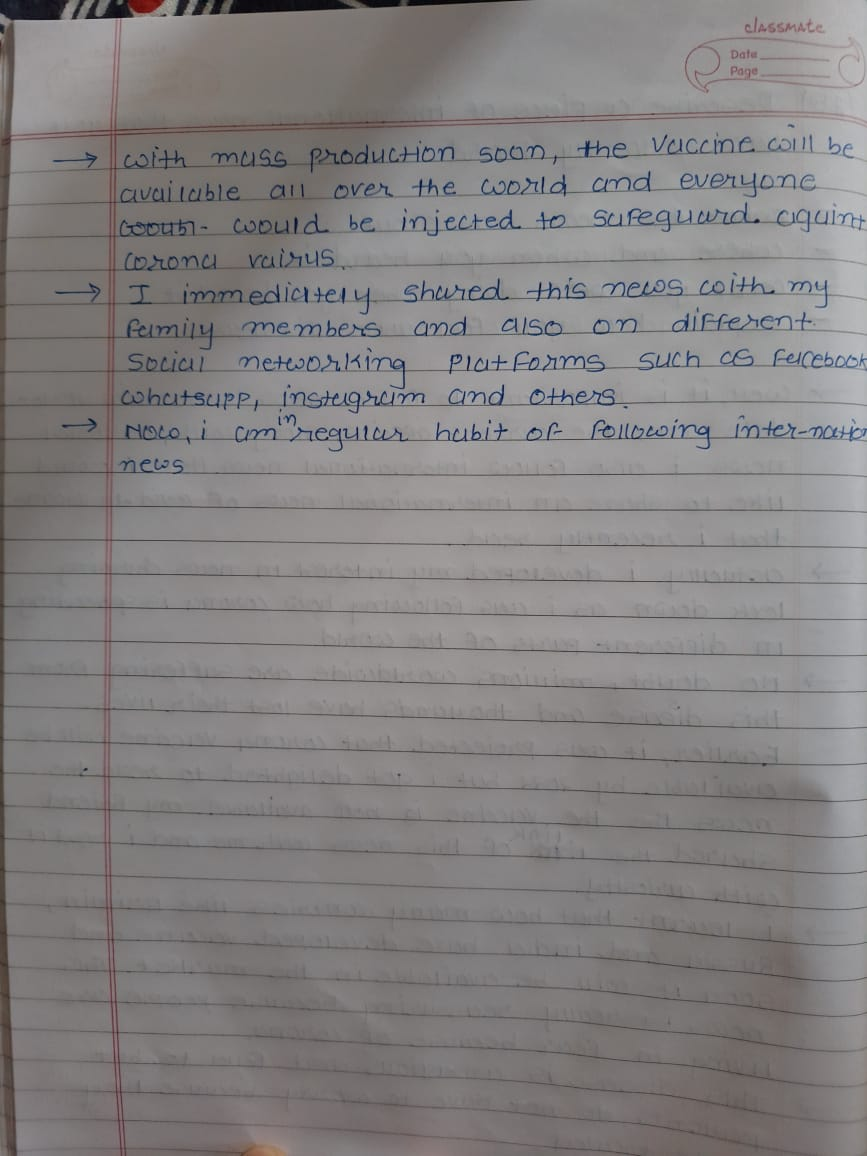 classmate
Date
Page
→ with mass production soon, the vaccine will be
available all over the world and everyone
would be injected to safeguard. againt
corona vairus.
→ I immediately shared this news with my
family members and also on different.
Social networking platforms such as facebook
whatsapp, instagram and others.
→ Now, i am in regular habit of following inter-natio
news